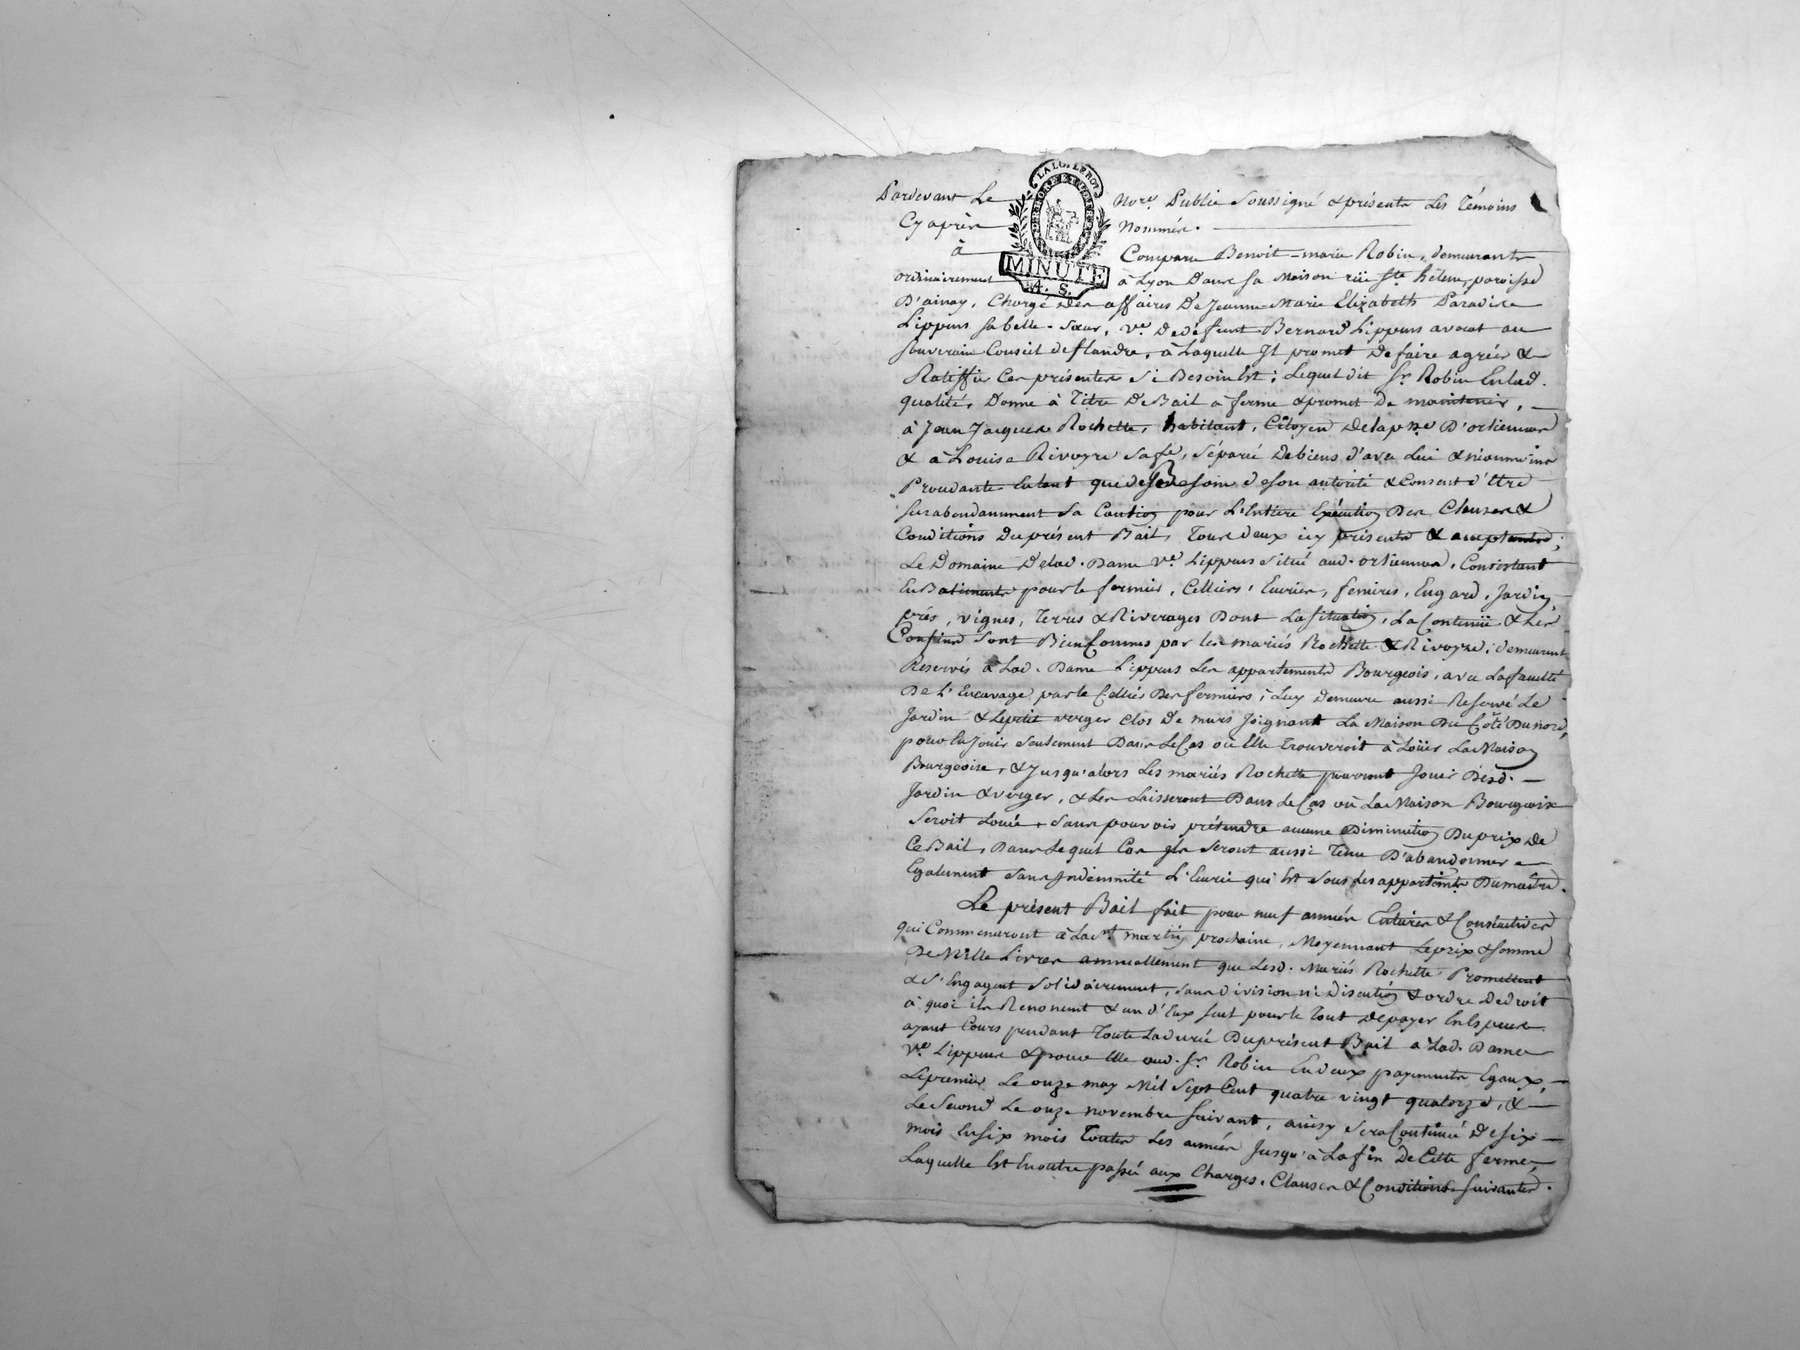 Pardevant Le Nore. Public Soussigné & présents Les Témoins
Cy après Nommés.
à Comparu Benoit-marie Robin, demeurants
ordinairement à Lyon Dans sa Maison rüe Ste hélene, paroisse
D'ainay, Chargé des affaires De Jeanne-Marie Elizabeth Paradis
Lippens sa belle-Sœur, Ve. De défunt Bernard Lippens avocat au
souverain Conseil de flandre, à Laquelle Il promet De faire agréer &
Ratiffier Ces présentes si Besoin Est; Lequel dit Sr. Robin Enlad.
qualité, Donne à Titre De Bail à ferme & promet De maintenir,
à Jean Jacques Rochette, habitant, Citoyen Delapsse D'orlienas
& à Louise Rivoyre Safe, séparé Debiens d'avec Lui & néanmoins
Procédante Entant que de Besoin de son autorité & Consent d'Etre
surabondamment Sa Caution pour L'Entiere Exécution Des Clauses &
Conditions Du présent Bail, Tous deux icy présents & acceptants;
Le Domaine Delad. Dame Ve. Lippens situé aud. orlienas, Consistant
En Batiments pour le fermier, Celliers, Ecuries, fenieres, Engard, Jardin,
prés, vignes, Terres & Riverages Dont La situation, La Contenüe & Les
Confins sont Bien Connus par les mariés Rochette & Rivoyre; demeurant
Reservés à Lad. Dame Lippens Les appartements Bourgeois, avec La faculté
De L'Encavage par le Cellier Des fermiers; Luy demeure aussi Reservé Le
Jardin & Lepetit verger clos De murs Joignant La Maison Du Côté Du nord,
pour En Jouir seulement Dans Le Cas où Elle Trouveroit à Loüer La Maison
Bourgeoise, & Jusqu'alors Les mariés Rochette pourront Jouir Desd.
Jardin & verger, & Les Laisseront Dans Le Cas où La Maison Bourgeoise
seroit Louée, Sans pouvoir prétendre aucune Diminution Du prix De
Ce Bail, Dans Lequel Cas Ils seront aussi Tenu D'abandonner
Egalement sans Indemnité L'Ecurie qui Est sous Les appartements Du maître.
Le présent Bail fait pour neuf années Entieres & Consécutives
qui Commenceront à La st martin prochaine, Moyennant Le prix & somme
De Mille Livres annuellement que Lesd. Mariés Rochette Promettent
& s'Engagent solidairement, sans Division ni Discution & ordre De droit
à quoi ils Renoncent & un d'Eux seul pour le Tout De payer En Especes
ayant Cours pendant Toute La durée Du présent Bail à Lad. Dame
Ve. Lippens & pour Elle aud. Sr. Robin En deux payements Egaux,
Le premier Le onze may Mil Sept Cent quatre vingt quatorze, &
Le Second Le onze novembre suivant, ainsy sera Continué De six
mois En six mois Toutes Les années Jusqu'à La fin De Cette ferme,
Laquelle Est Ensuite passée aux Charges, Clauses & Conditions suivantes.
LA LOI LE ROI
MINUTE
4. S.